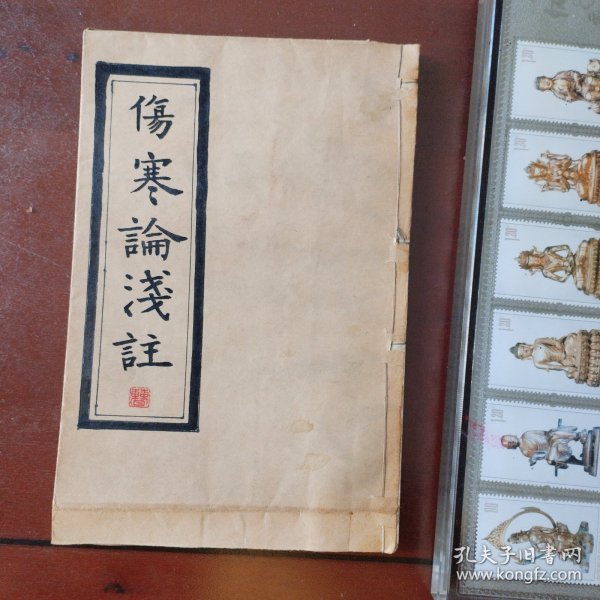 傷寒論淺註
孔夫子旧书网
www.kongfz.com